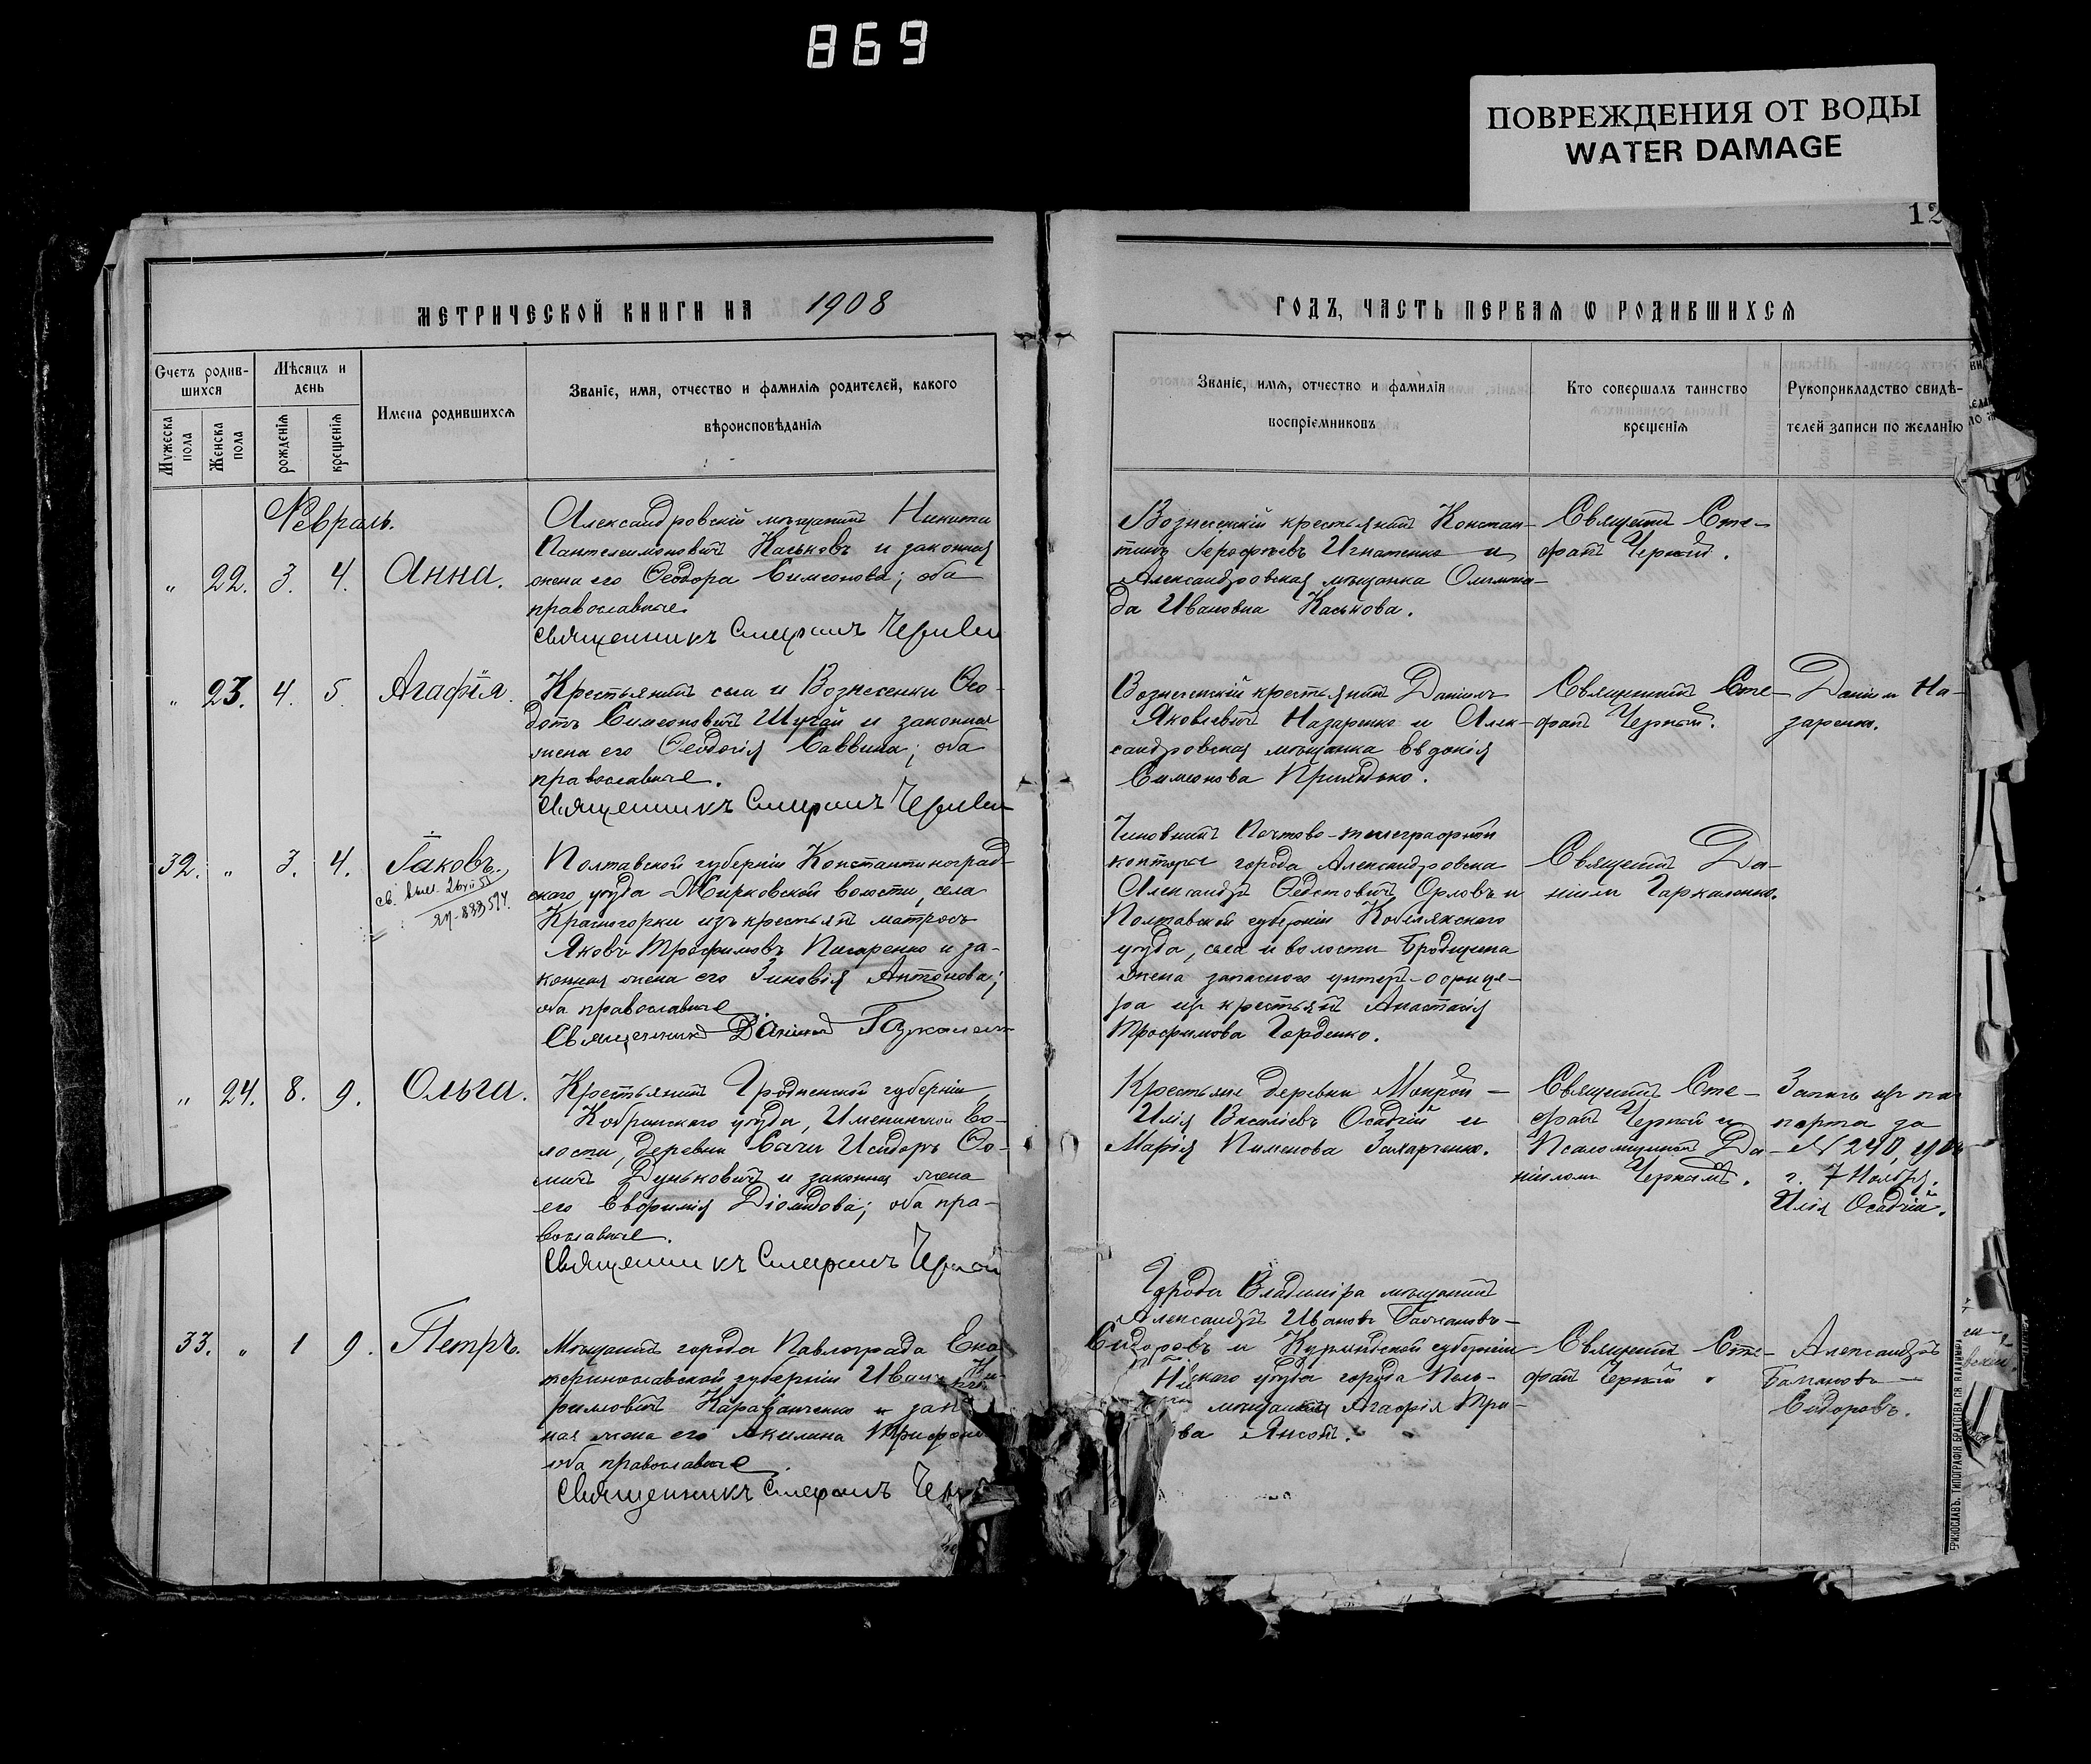 869
ПОВРЕЖДЕНИЯ ОТ ВОДЫ
WATER DAMAGE
12
МЕТРИЧЕСКОЙ КНИГИ НА 1908
ГОДЪ, ЧАСТЬ ПЕРВАЯ Ѡ РОДИВШИХСЯ
Счетъ родив-
шихся
Мѣсяцъ и
день
Имена родившихся
Званіе, имя, отчество и фамилія родителей, какого
вѣроисповѣданія
Мужеска
пола
Женска
пола
рожденія
крещенія
Званіе, имя, отчество и фамилія
воспріемниковъ
Кто совершалъ таинство
крещенія
Рукоприкладство свидѣ-
телей записи по желанію
Февраль.
„ 22. 3. 4. Анна.
Александровскій мѣщанинъ Никита
Пантелеимоновичъ Каськовъ и законная
жена его Ѳеодора Симеонова; оба
православные.
Священникъ Стефанъ Черный
Вознесенскій крестьянинъ Констан-
тинъ Іероѳеевъ Игнатенко и
Александровская мѣщанка Олимпіа-
да Ивановна Каськова.
Священникъ Сте-
фанъ Черный.
„ 23. 4. 5. Агафія.
Крестьянинъ села и Вознесенки Ѳео-
дотъ Симеоновичъ Шучай и законная
жена его Ѳеодосія Саввина; оба
православные.
Священникъ Стефанъ Черный
Вознесенскій крестьянинъ Даніилъ
Яковлевичъ Назаренко и Алек-
сандровская мѣщанка Евдокія
Симеонова Приходько.
Священникъ Сте-
фанъ Черный.
Даніилъ На-
заренко.
32. „ 3. 4. Іаковъ.
Полтавской губерніи Константиноград-
скаго уѣзда Жирковской волости, села
Красногорки изъ крестьянъ матросъ
Яковъ Трофимовъ Писаренко и за-
конная жена его Зиновія Антонова;
оба православные.
Священникъ Даніилъ Гаркаленко
Чиновникъ Почтово-телеграфной
конторы города Александровска
Александръ Ѳедотовичъ Орловъ и
Полтавской губерніи Кобелякскаго
уѣзда, села и волости Бродщина
жена запаснаго унтеръ-офице-
ра изъ крестьянъ Анастасія
Трофимова Горденко.
Священникъ Да-
ніилъ Гаркаленко.
„ 24. 8. 9. Ольга.
Крестьянинъ Гродненской губерніи
Кобринскаго уѣзда, Именинской во-
лости, деревни Сачи Исидоръ Ѳо-
мичъ Дуньковичъ и законная жена
его Евфимія Діомидова; оба пра-
вославные.
Священникъ Стефанъ Черный
Крестьяне деревни Мокрой
Илія Василіевъ Осадчій и
Марія Пименова Захарченко.
Священникъ Сте-
фанъ Черный и
Псаломщикъ Да-
ніиломъ Чернымъ.
Запись изъ па-
порта за
№ 240, 190
г. 7 Ноября.
Илія Осадчій.
33. „ 1 9. Петръ.
Мѣщанинъ города Павлограда Ека-
теринославской губерніи Иванъ
Караванченко и закон
ная жена его Акилина Трифон
оба православные.
Священникъ Стефанъ Чер
Города Владиміра мѣщанинъ
Александръ Ивановъ Балмановъ-
Сидоровъ и Курляндской губерніи
скаго уѣзда города
мѣщанка Агафія Три-
ва Янсонъ.
Священникъ Сте-
фанъ Черный.
Александръ
Балмановъ-
Сидоровъ.
ТИПОГРАФІЯ БРАТСТВА СВ. ВЛАДИМІРА